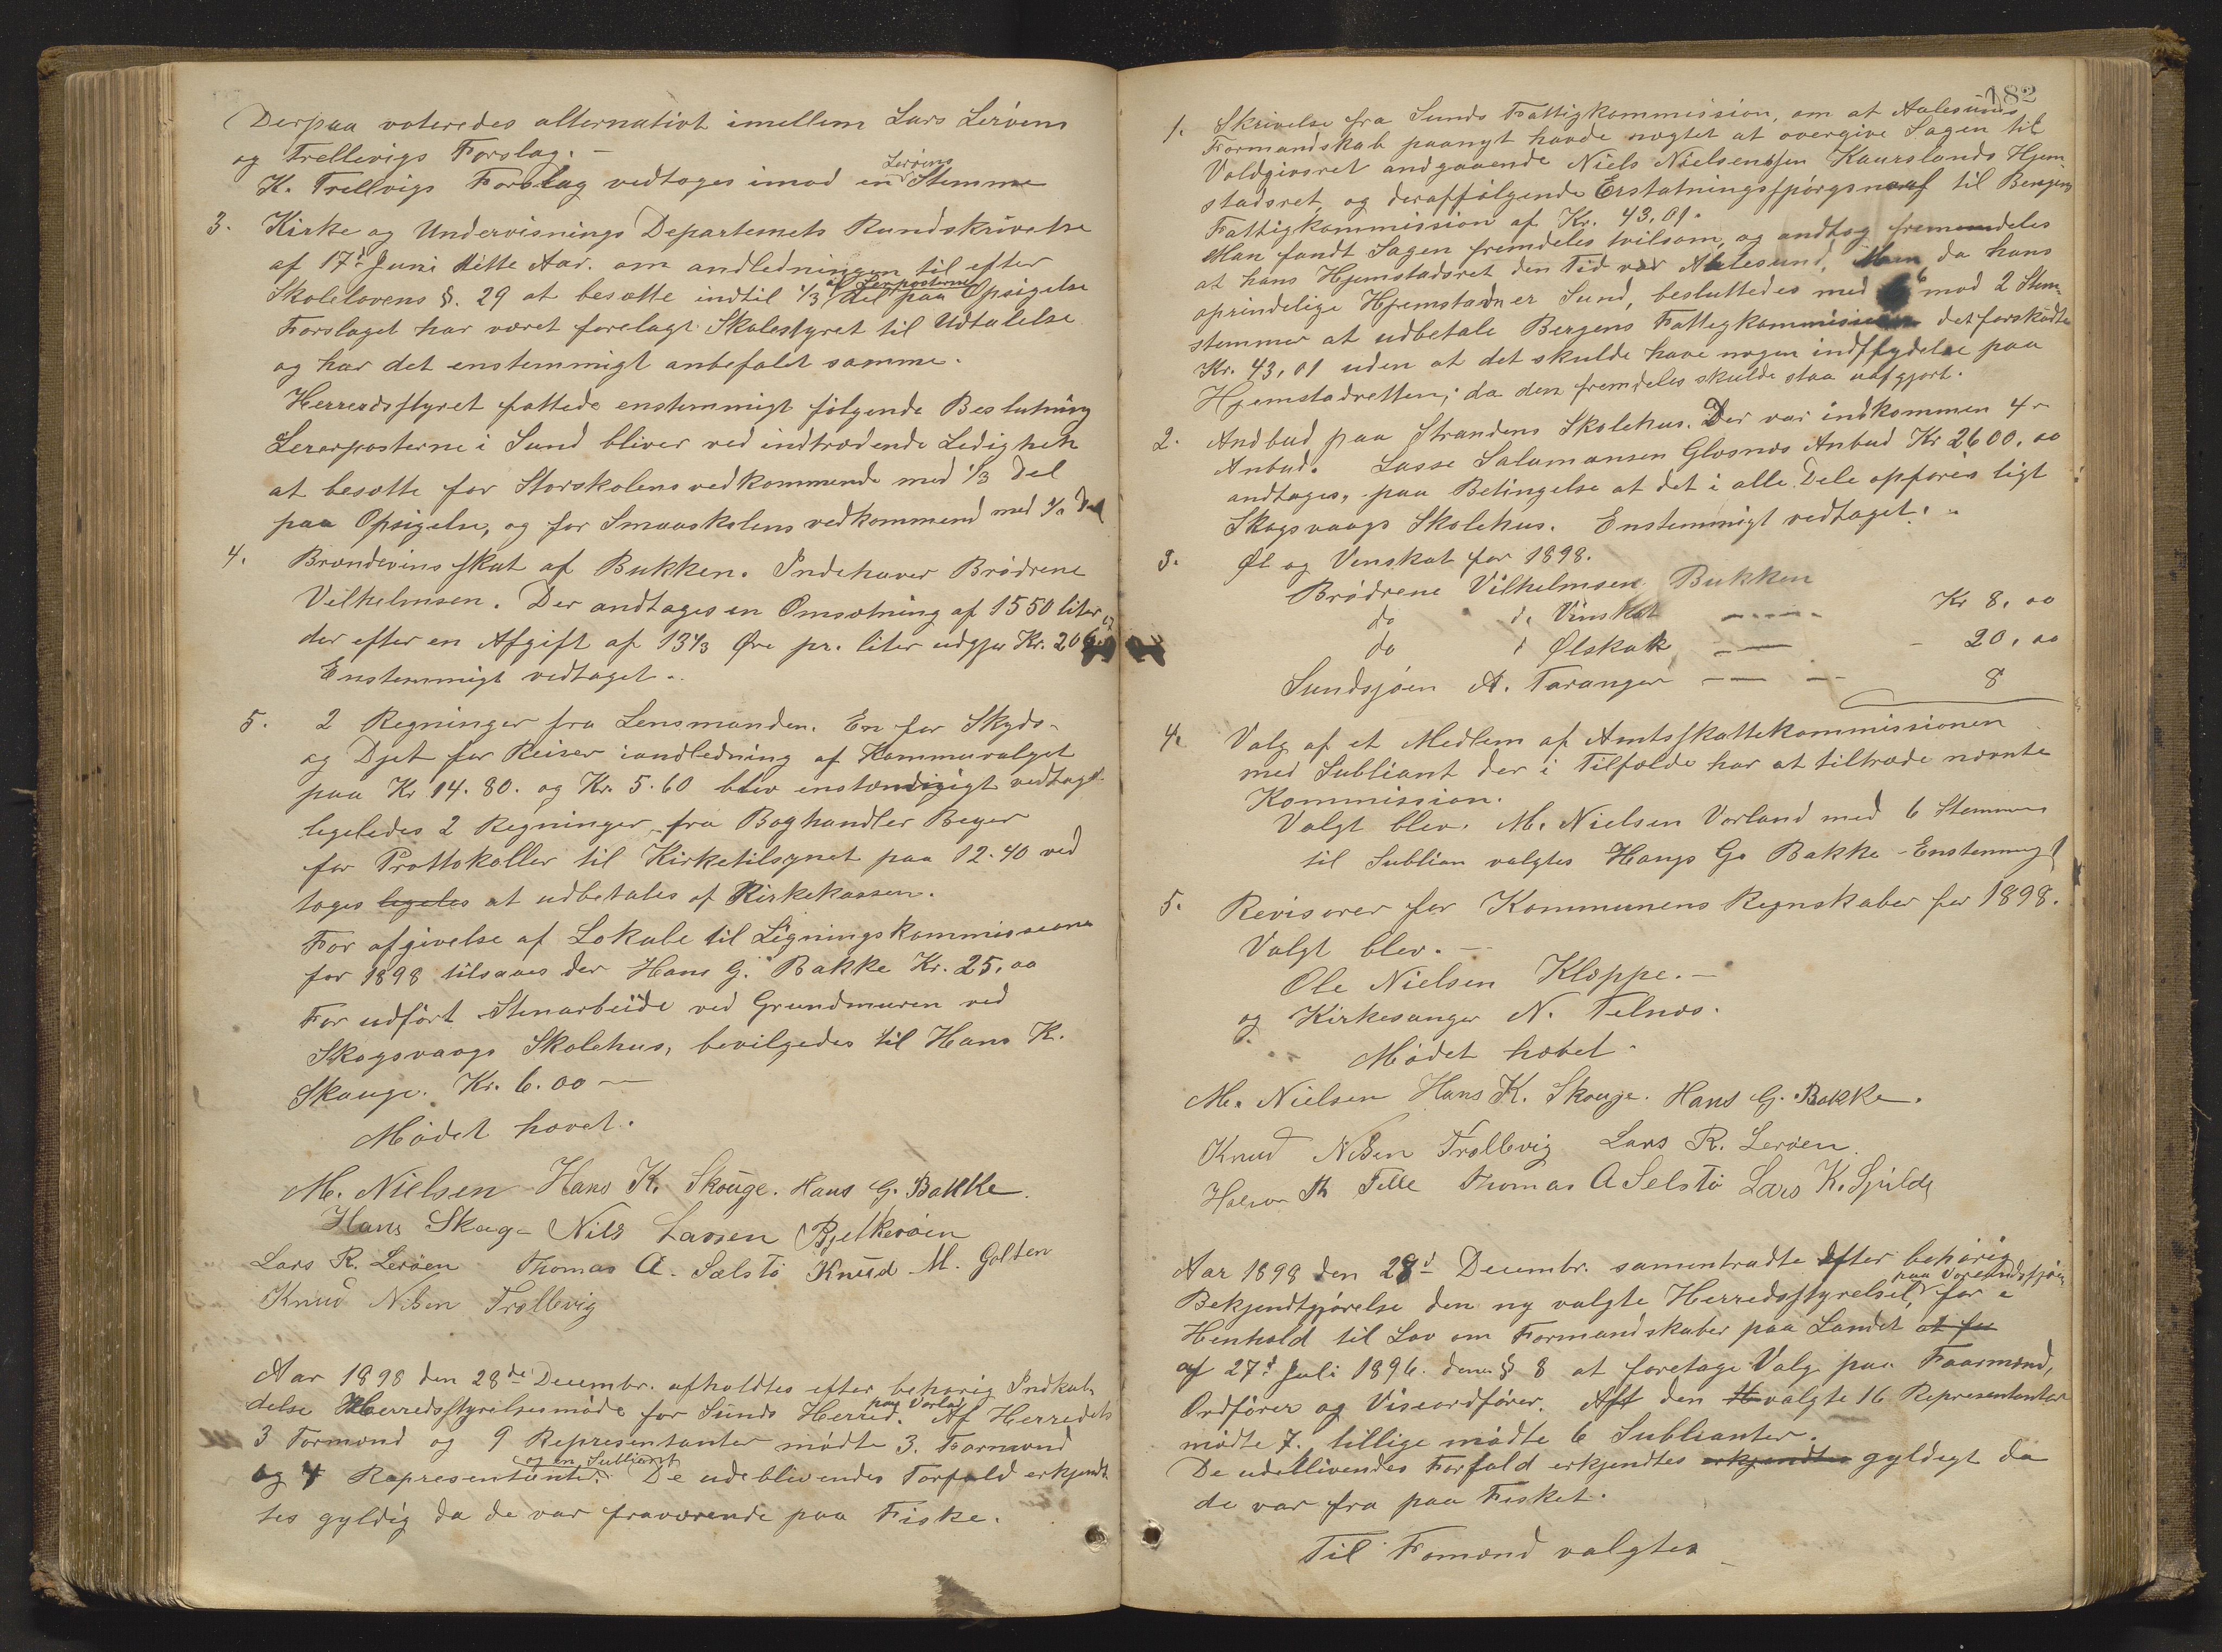 Derpaa voteredes alternativt imellem Lars Lerøens
og Trellevigs Forslag. -
Lerøens
K. Trellvigs Forslag vedtoges imod en Stemme
3. Kirke og Undervisnings Departemets Rundskrivelse
af 17d Juni dette Aar. om andledningen til efter
af Lerposterne
Skolelovens §. 29 at besætte indtil 1/3 del paa Opsigelse
Forslaget har været forelagt Skolestyret til Udtalelse
og har det enstemmigt anbefalet samme.
Herredsstyret fattede enstemmigt følgende Beslutning
Lererposterne i Sund bliver ved indtrædende Ledigheh
at besætte for Storskolens vedkommende med 1/3 Del
paa Opsigelse, og for Smaaskolens vedkommend med Del
4. Brændevins skat af Bukken. Indehaver Brødrene
Vilhelmsen. Der andtages en Omsætning af 1550 liter
der efter en Afgift af 13 1/3 Øre pr. liter udgjør Kr. 206.
Enstemmigt vedtaget..
5. 2 Regninger fra Lensmanden. En for Skyds-
og Djet for Reiser iandledning af Kommuvalget
paa Kr 14.80. og Kr. 5.60 blev enstemdigigt vedtaget
legeledes 2 Regninger fra Boghandler Beyer
for Prottokoller til Kirketilsynet paa 12.40 ved
toges legeles at udbetales af Kirkekassen.
For afgivelse af Lokale til Ligningskommissionen
for 1898 tilsaaes der Hans G. Bakke Kr. 25,00
For udført Stenarbeide ved Grundmuren ved
Skogsvaags Skolehus, bevilgedes til Hans K.
Skauge. Kr. 6.00 -
Mødet hævet.
M. Nielsen Hans K. Skouge. Hans G. Bakke.
Hans Skag- Nils Larsen Bjelkerøen
Lars R. Lerøen Thomas A. Sælstø Knud M. Golten
Knud Nilsen Trællevig
Aar 1898 den 28de Decembr. afholdtes efter behørig Indkal-
paa Vorland
delse Herredsstyrelsesmøde for Sunds Herred. Af Herredets
3 Formænd og 9 Representanter mødte 3. Formænd
og en Subliant
og 4 Representanter. De udeblivendes Forfald erkjendt
tes gyldig da de var fraværende paa Fiske.
182
1. Skrivelse fra Sunds Fattigkommission, om at Aalesunds
Formandskab paanyt havde nægtet at overgive Sagen til
Voldgivsret andgaaende Niels Nielsensen Kaurslands Hjem-
stadsret, og deraffølgende Erstatningsspørgsmaal til Bergens
Fattigkommission af Kr. 43,01.
Man fandt Sagen fremdeles tvilsom, og andtog fremdeles
at hans Hjemstadsret den Tid var Aalesund, Men da hans
oprindelige Hjemstavn er Sund, besluttedes med 6 mod 2 Stem-
stemmer at udbetale Bergens Fattigkommission det forskudte
Kr. 43,01 uden at det skulde have nogen indflydelse paa
Hjemstadretten; da den fremdeles skulde staa uafgjort.
2. Andbud paa Strandens Skolehus. Der var indkommen 4r
Anbud. Lasse Salamonsen Glesnes Anbud Kr 2600,00
andtages, paa Betingelse at det i alle Dele opføres ligt
Skogsvaags Skolehus. Enstemmigt vedtaget..
3. Øl og Vinskat for 1898.
Brødrene Vilhelmsen Bukken
do d. Vinskat ---- Kr 8,00
do d Ølskat --- - 20,00
Sundsjøen A. Faranger --- - 8
4. Valg af et Medlem af Amtsskattekommissionen
med Subliant der i Tilfælde har at tiltræde nævnte
Kommission.
Valgt blev. M. Nielsen Vorland med 6 Stemmer
til Sublian valgtes Hangs G. Bakke - Enstemmigt
5. Revisorer for Kommunens Regnskaber for 1898.
Valgt blev. -
Ole Nielsen Kleppe. -
og Kirkesanger N. Telnæs.
Mødet hævet.
M. Nielsen Hans K. Skouge. Hans G. Bakke.
Knud Nilsen Trællevig Lars R. Lerøen.
Halvor Th Telle Thomas A Selstø Lars K. Spilde
Aar 1898 den 28d Decembr. samentraadte efter behørig
paa Vorlandssjøen
Bekjendtgjørelse den ny valgte Herredsstyrelsel, for e
Henhold til Lov om Formandskaber paa Landet at for
af 27d Juli 1896. dens § 8 at foretage Valg paa Faarmænd,
Ordfører og Viseordfører. Aff den H valgte 16 Representanter
mødte 7. tillige mødte 6 Sublianter.
De udeblivendes Forfald erkjendtes erkjendtes gyldigt da
de var fra paa Fisket.
Til Fomænd valgtes